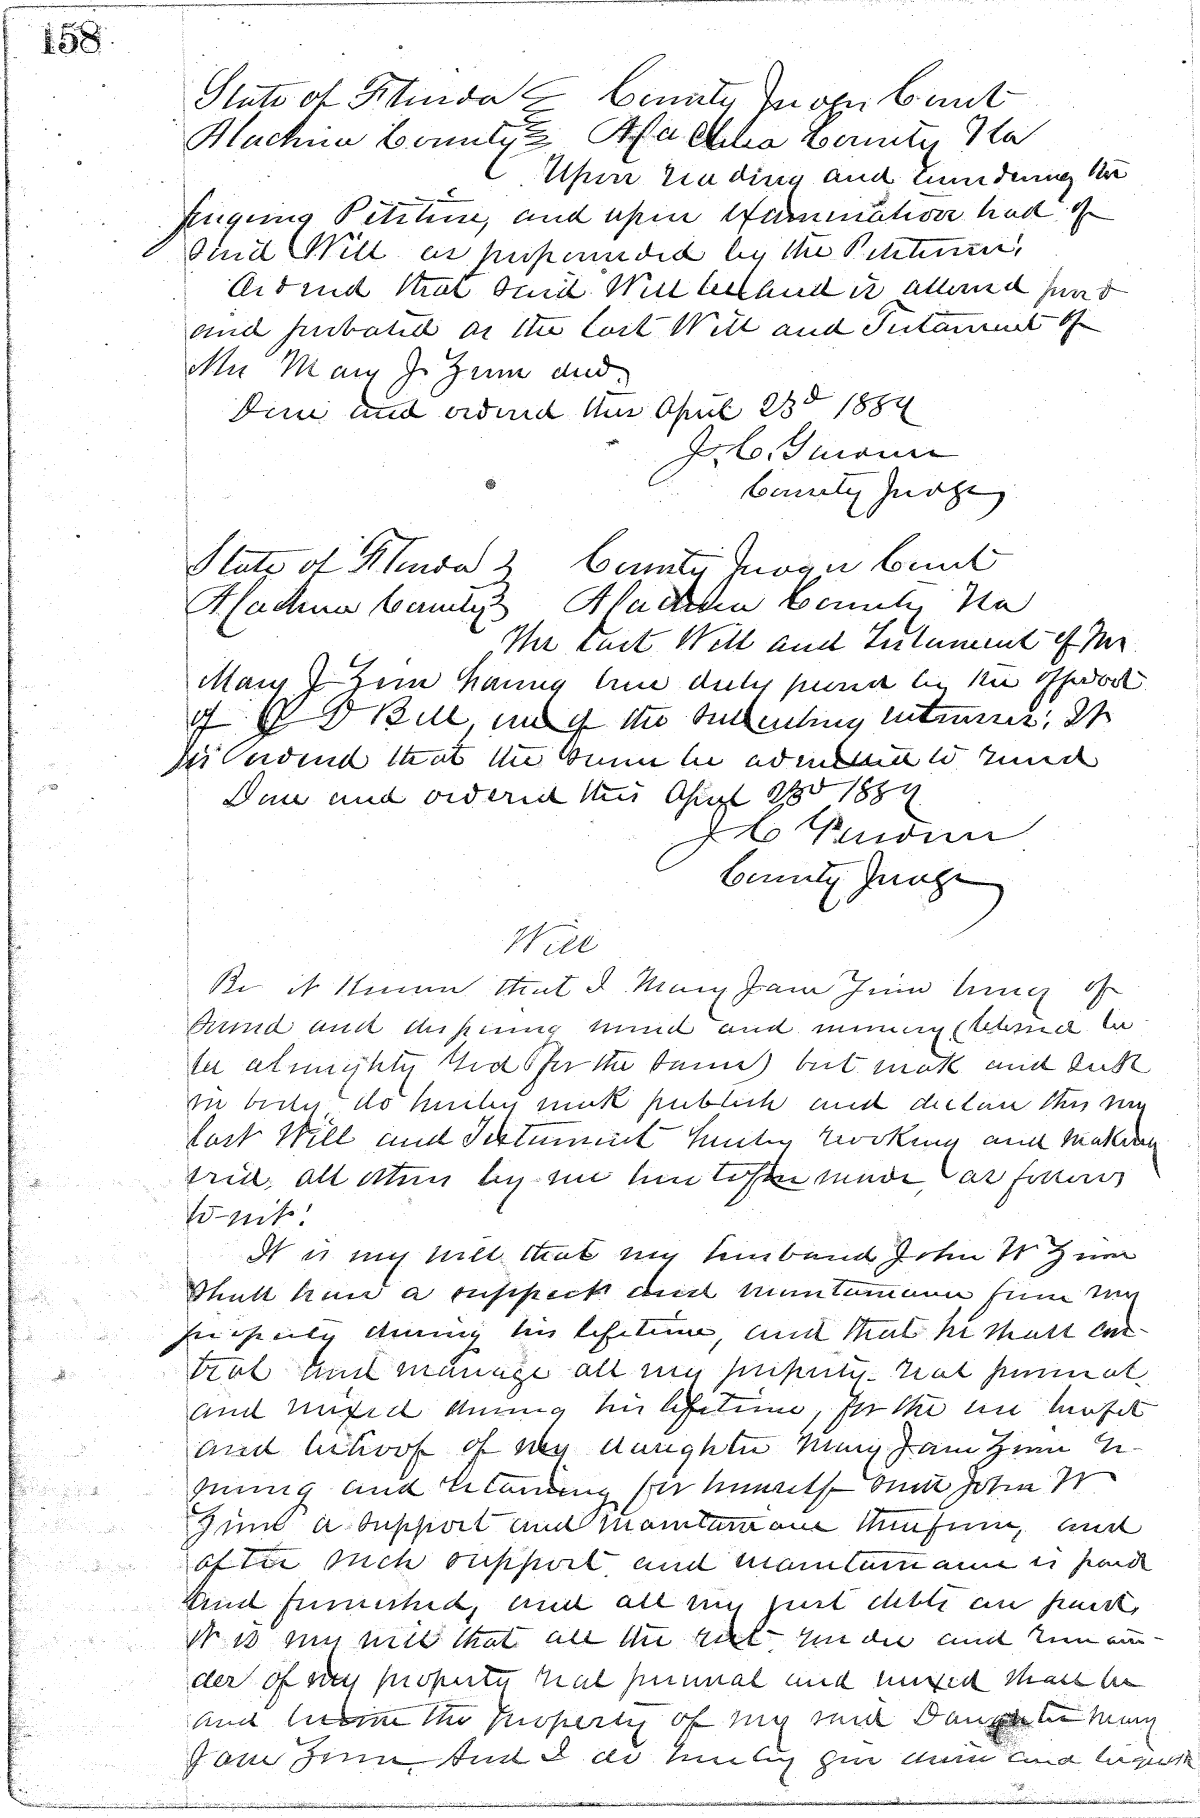 158
State of Florida County Judges Court
Alachua County Alachua County Fla
Upon reading and considering the
foregoing Petition, and upon examination had of
said Will as propounded by the Petitioner,
Ordered that said Will be and is allowed proved
and probated as the last Will and Testament of
Mrs Mary J. Zinn decd.
Done and ordered this April 23d 1884
J. C.
County Judge
State of Florida County Judges Court
Alachua County Alachua County Fla
The last Will and Testament of Mrs
Mary J Zinn having been duly proved by the affidavit
of D Bell, one of the subscribing witnesses, It
is ordered that the same be admitted to record
Done and ordered this April 23d 1884
J C
County Judge
Will
Be it known that I Mary Jane Zinn being of
sound and disposing mind and memory (blessed be
to almighty God for the same) but weak and sick
in body, do hereby make publish and declare this my
last Will and Testament hereby revoking and making
void, all others by me heretofore made, as follows
to-wit:
It is my will that my husband John W Zinn
shall have a support and maintainance from my
property during his lifetime, and that he shall con-
trol and manage all my property real personal
and mixed during his lifetime, for the use benefit
and behoof of my daughter Mary Jane Zinn re-
serving and retaining for himself said John W
Zinn a support and maintainance therefrom, and
after such support and maintainance is paid
and furnished, and all my just debts are paid,
It is my will that all the rest residue and remain-
der of my property real personal and mixed shall be
and become the property of my said Daughter Mary
Jane Zinn And I do hereby give devise and bequeath